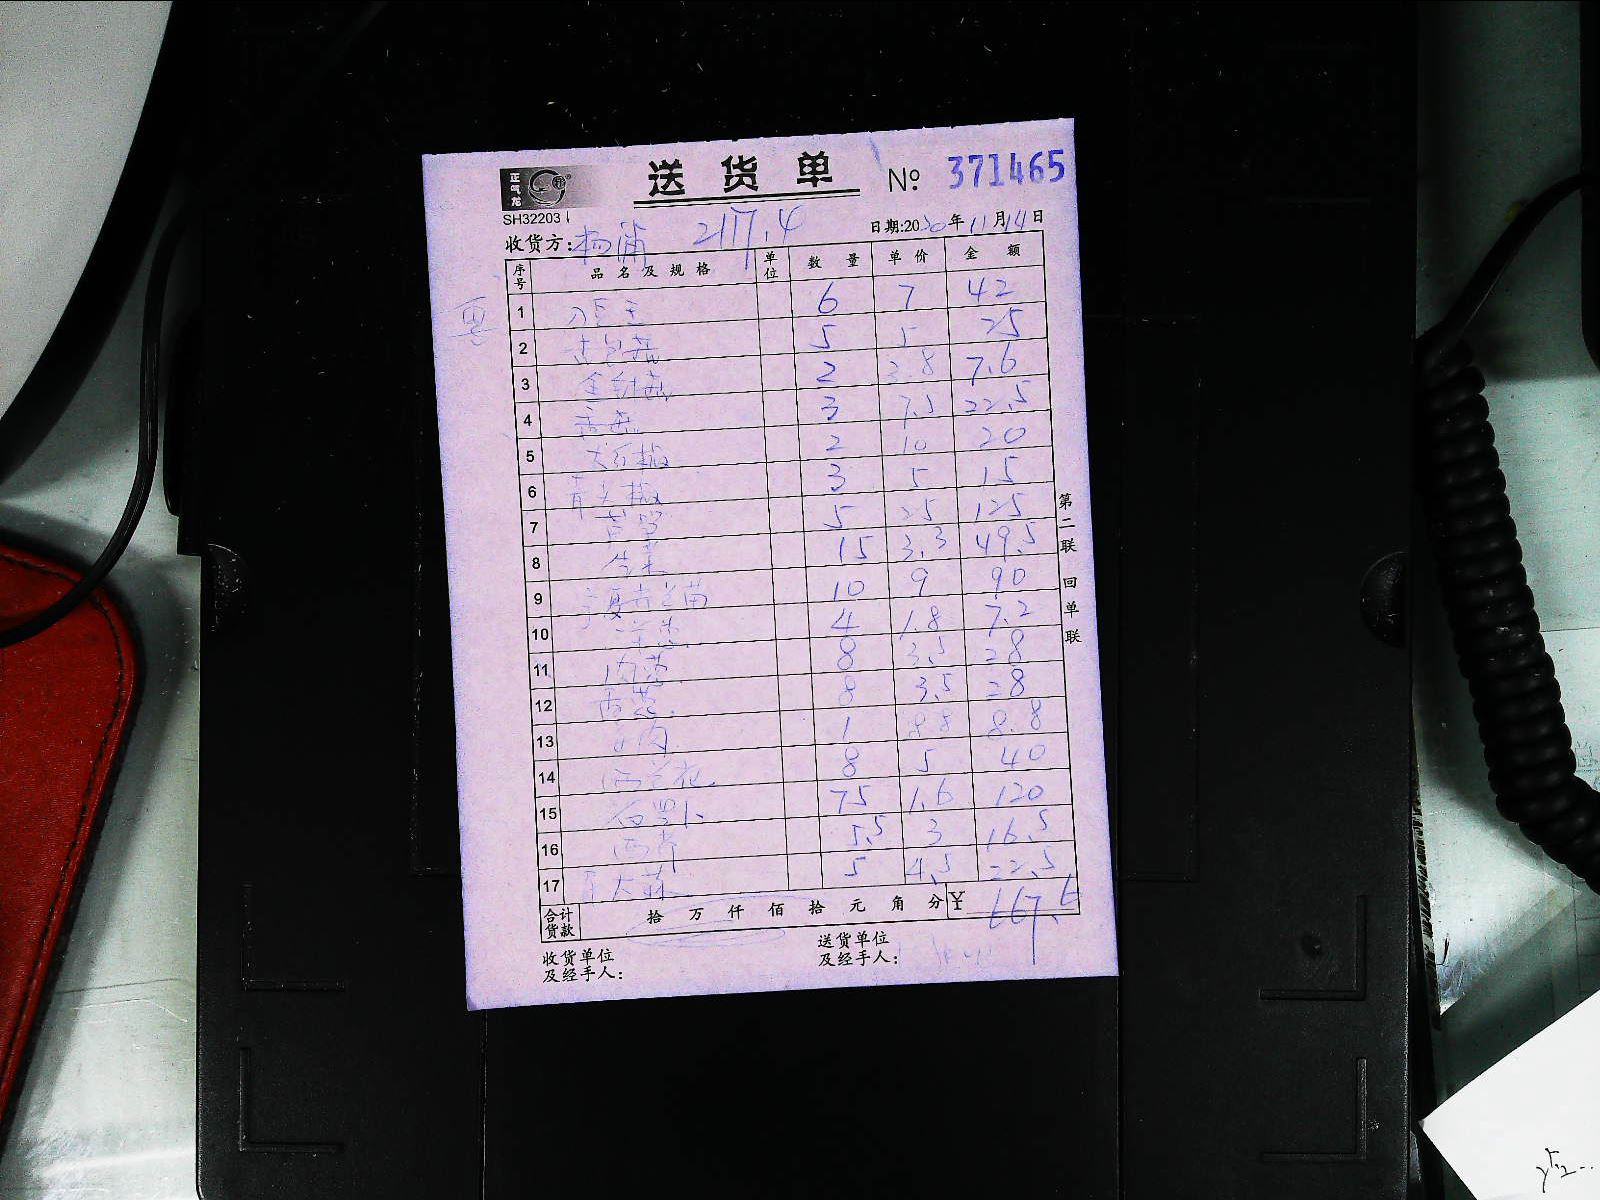 正气龙
送货单 № 371465
SH32203
收货方: 杨浦 2117.4 日期:2020年11月14日
序号 品名及规格 单位 数量 单价 金额
1 刀豆王 6 7 42
2 5 5 25
3 金针菇 2 3.8 7.6
4 香菇 3 7.5 22.5
5 大红椒 2 10 20
6 青尖椒 3 5 15
7 5 25 125
8 生菜 15 3.3 49.5
9 10 9 90
10 4 1.8 7.2
11 8 3.5 28
12 8 3.5 28
13 1 8.8 8.8
14 西兰花 8 5 40
15 白罗卜 75 1.6 120
16 西芹 5.5 3 16.5
17 青大蒜 5 4.5 22.5
合计货款 拾万仟佰拾元角分 ¥ 667.6
收货单位及经手人:
送货单位及经手人:
第二联 回单联